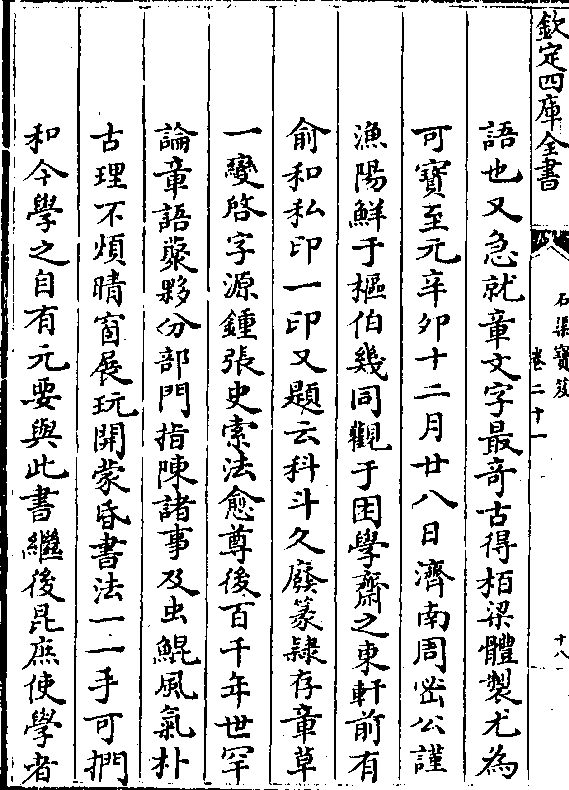 欽定四庫全書
石渠寶笈
卷二十一
十八
語也又急就章文字最奇古得栢梁體製尤為
可寶至元辛卯十二月廿八日濟南周密公謹
漁陽鮮于樞伯幾同觀于困學齋之東軒前有
俞和私印一印又題云科斗久廢篆隸存章草
一變啓字源鍾張史索法愈尊後百千年世罕
論章語蕞夥分部門指陳諸事及虫鯤風氣朴
古理不煩晴窗展玩開蒙昏書法一一手可捫
和今學之自有元要與此書繼後昆庶使學者